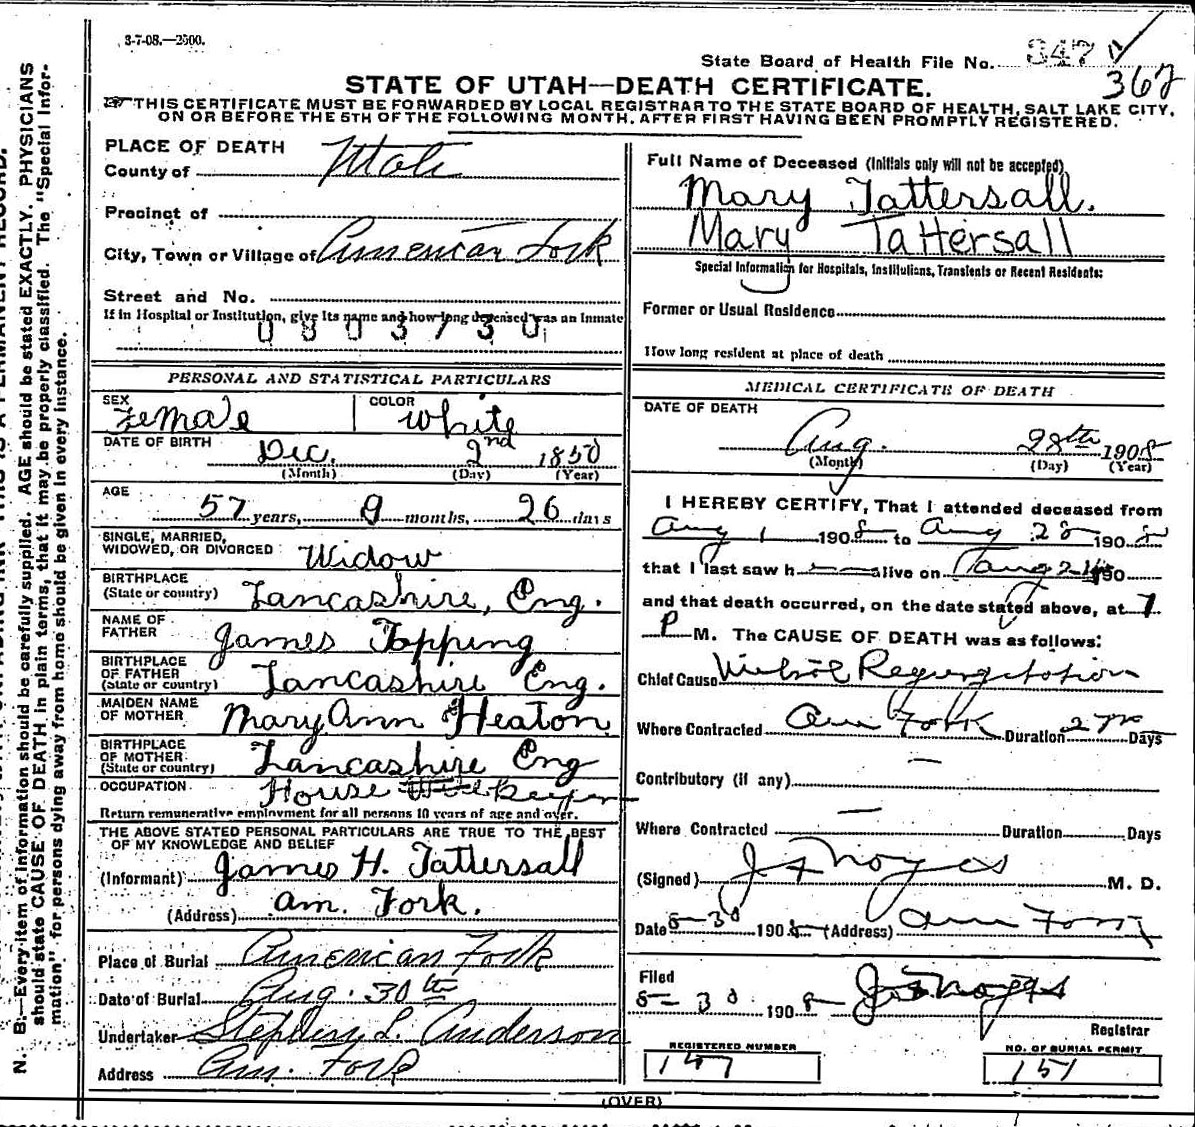 3-7-08.—2500.
State Board of Health File No. 347
367
STATE OF UTAH—DEATH CERTIFICATE.
THIS CERTIFICATE MUST BE FORWARDED BY LOCAL REGISTRAR TO THE STATE BOARD OF HEALTH, SALT LAKE CITY,
ON OR BEFORE THE 5TH OF THE FOLLOWING MONTH, AFTER FIRST HAVING BEEN PROMPTLY REGISTERED.
PLACE OF DEATH
County of Utah
Precinct of
City, Town or Village of American Fork
Street and No.
If in Hospital or Institution, give its name and how long deceased was an Inmate
0803730
PERSONAL AND STATISTICAL PARTICULARS
SEX Female COLOR White
DATE OF BIRTH Dec. 2nd 1850
(Month) (Day) (Year)
AGE
57 years, 9 months, 26 days
SINGLE, MARRIED,
WIDOWED, OR DIVORCED Widow
BIRTHPLACE
(State or country) Lancashire, Eng.
NAME OF
FATHER James Topping
BIRTHPLACE
OF FATHER
(State or country) Lancashire Eng.
MAIDEN NAME
OF MOTHER Mary Ann Heaton
BIRTHPLACE
OF MOTHER
(State or country) Lancashire Eng
OCCUPATION House Keeper
Return remunerative employment for all persons 10 years of age and over.
THE ABOVE STATED PERSONAL PARTICULARS ARE TRUE TO THE BEST
OF MY KNOWLEDGE AND BELIEF
(Informant) James H. Tattersall
(Address) Am. Fork.
Place of Burial American Fork
Date of Burial Aug. 30th
Undertaker Stephen L. Anderson
Address Am. Fork
Full Name of Deceased (Initials only will not be accepted)
Mary Tattersall.
Mary Tattersall
Special Information for Hospitals, Institutions, Transients or Recent Residents:
Former or Usual Residence
How long resident at place of death
MEDICAL CERTIFICATE OF DEATH
DATE OF DEATH
Aug. 28th 1908
(Month) (Day) (Year)
I HEREBY CERTIFY, That I attended deceased from
Aug 1 1908 to Aug 28 1908
that I last saw h alive on Aug 190
and that death occurred, on the date stated above, at 7
P M. The CAUSE OF DEATH was as follows:
Chief Cause Regurgitation
Where Contracted Am Fork Duration Days
Contributory (if any) —
Where Contracted — Duration Days
(Signed) Noyes M. D.
Date 8-30 1908 (Address) Am Fork
Filed
8-30 1908 Noyes
Registrar
REGISTERED NUMBER
147
NO. OF BURIAL PERMIT
151
(OVER)
N. B.—Every item of information should be carefully supplied. AGE should be stated EXACTLY. PHYSICIANS
should state CAUSE OF DEATH in plain terms, that it may be properly classified. The "Special Infor-
mation" for persons dying away from home should be given in every instance.